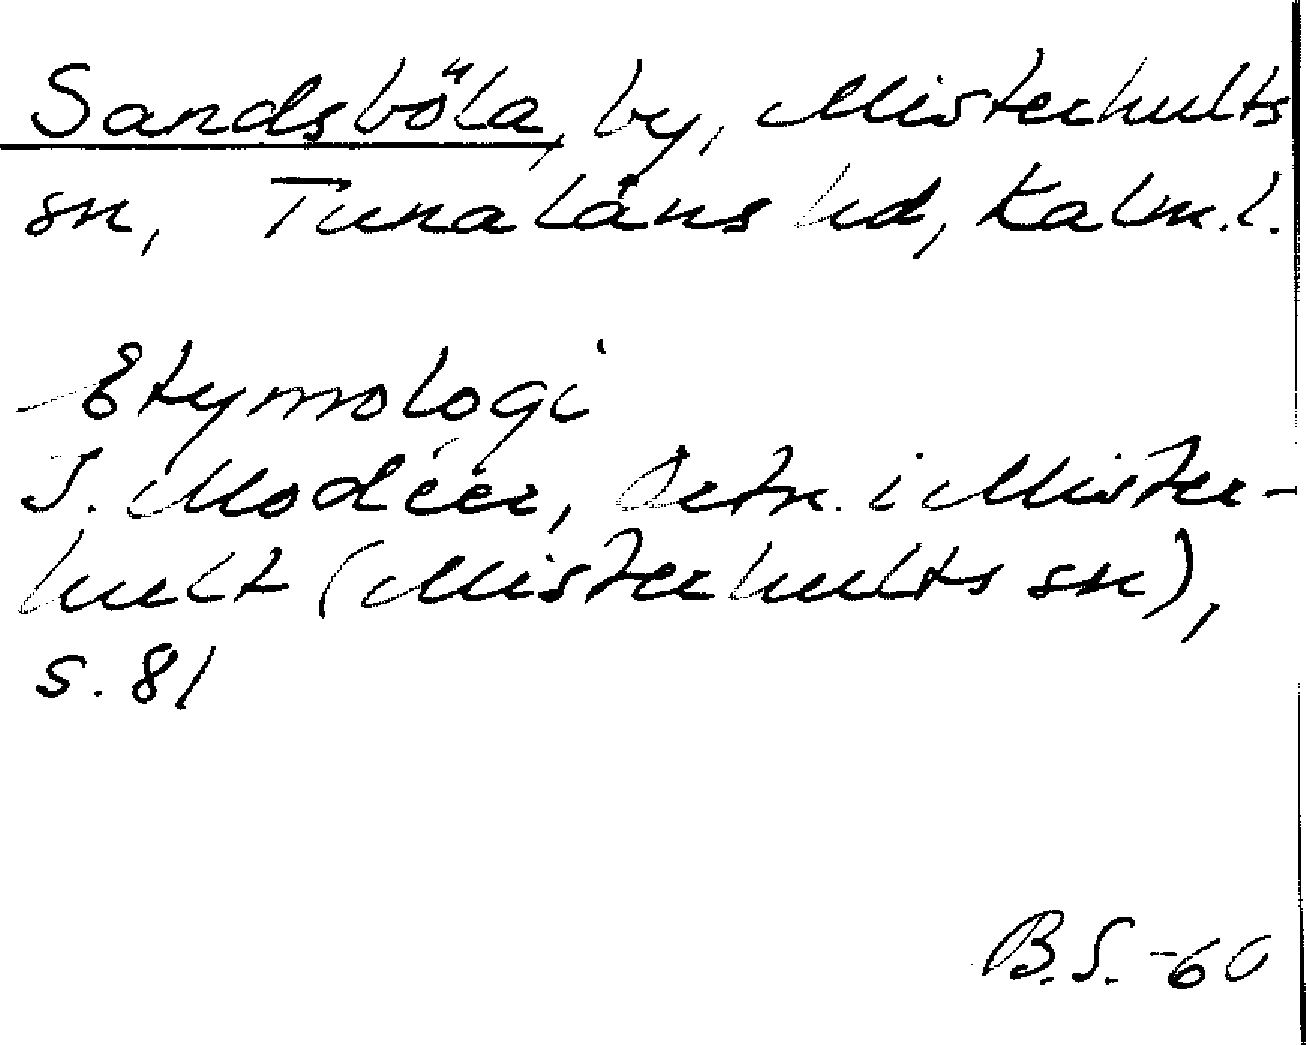 Sandsböla, by, Misterhults
sn, Tunaläns hd, Kalm. l.
Etymologi
I. Modéer, Ortn. i Mister-
hult (Misterhults sn),
s. 81
B.S. -60